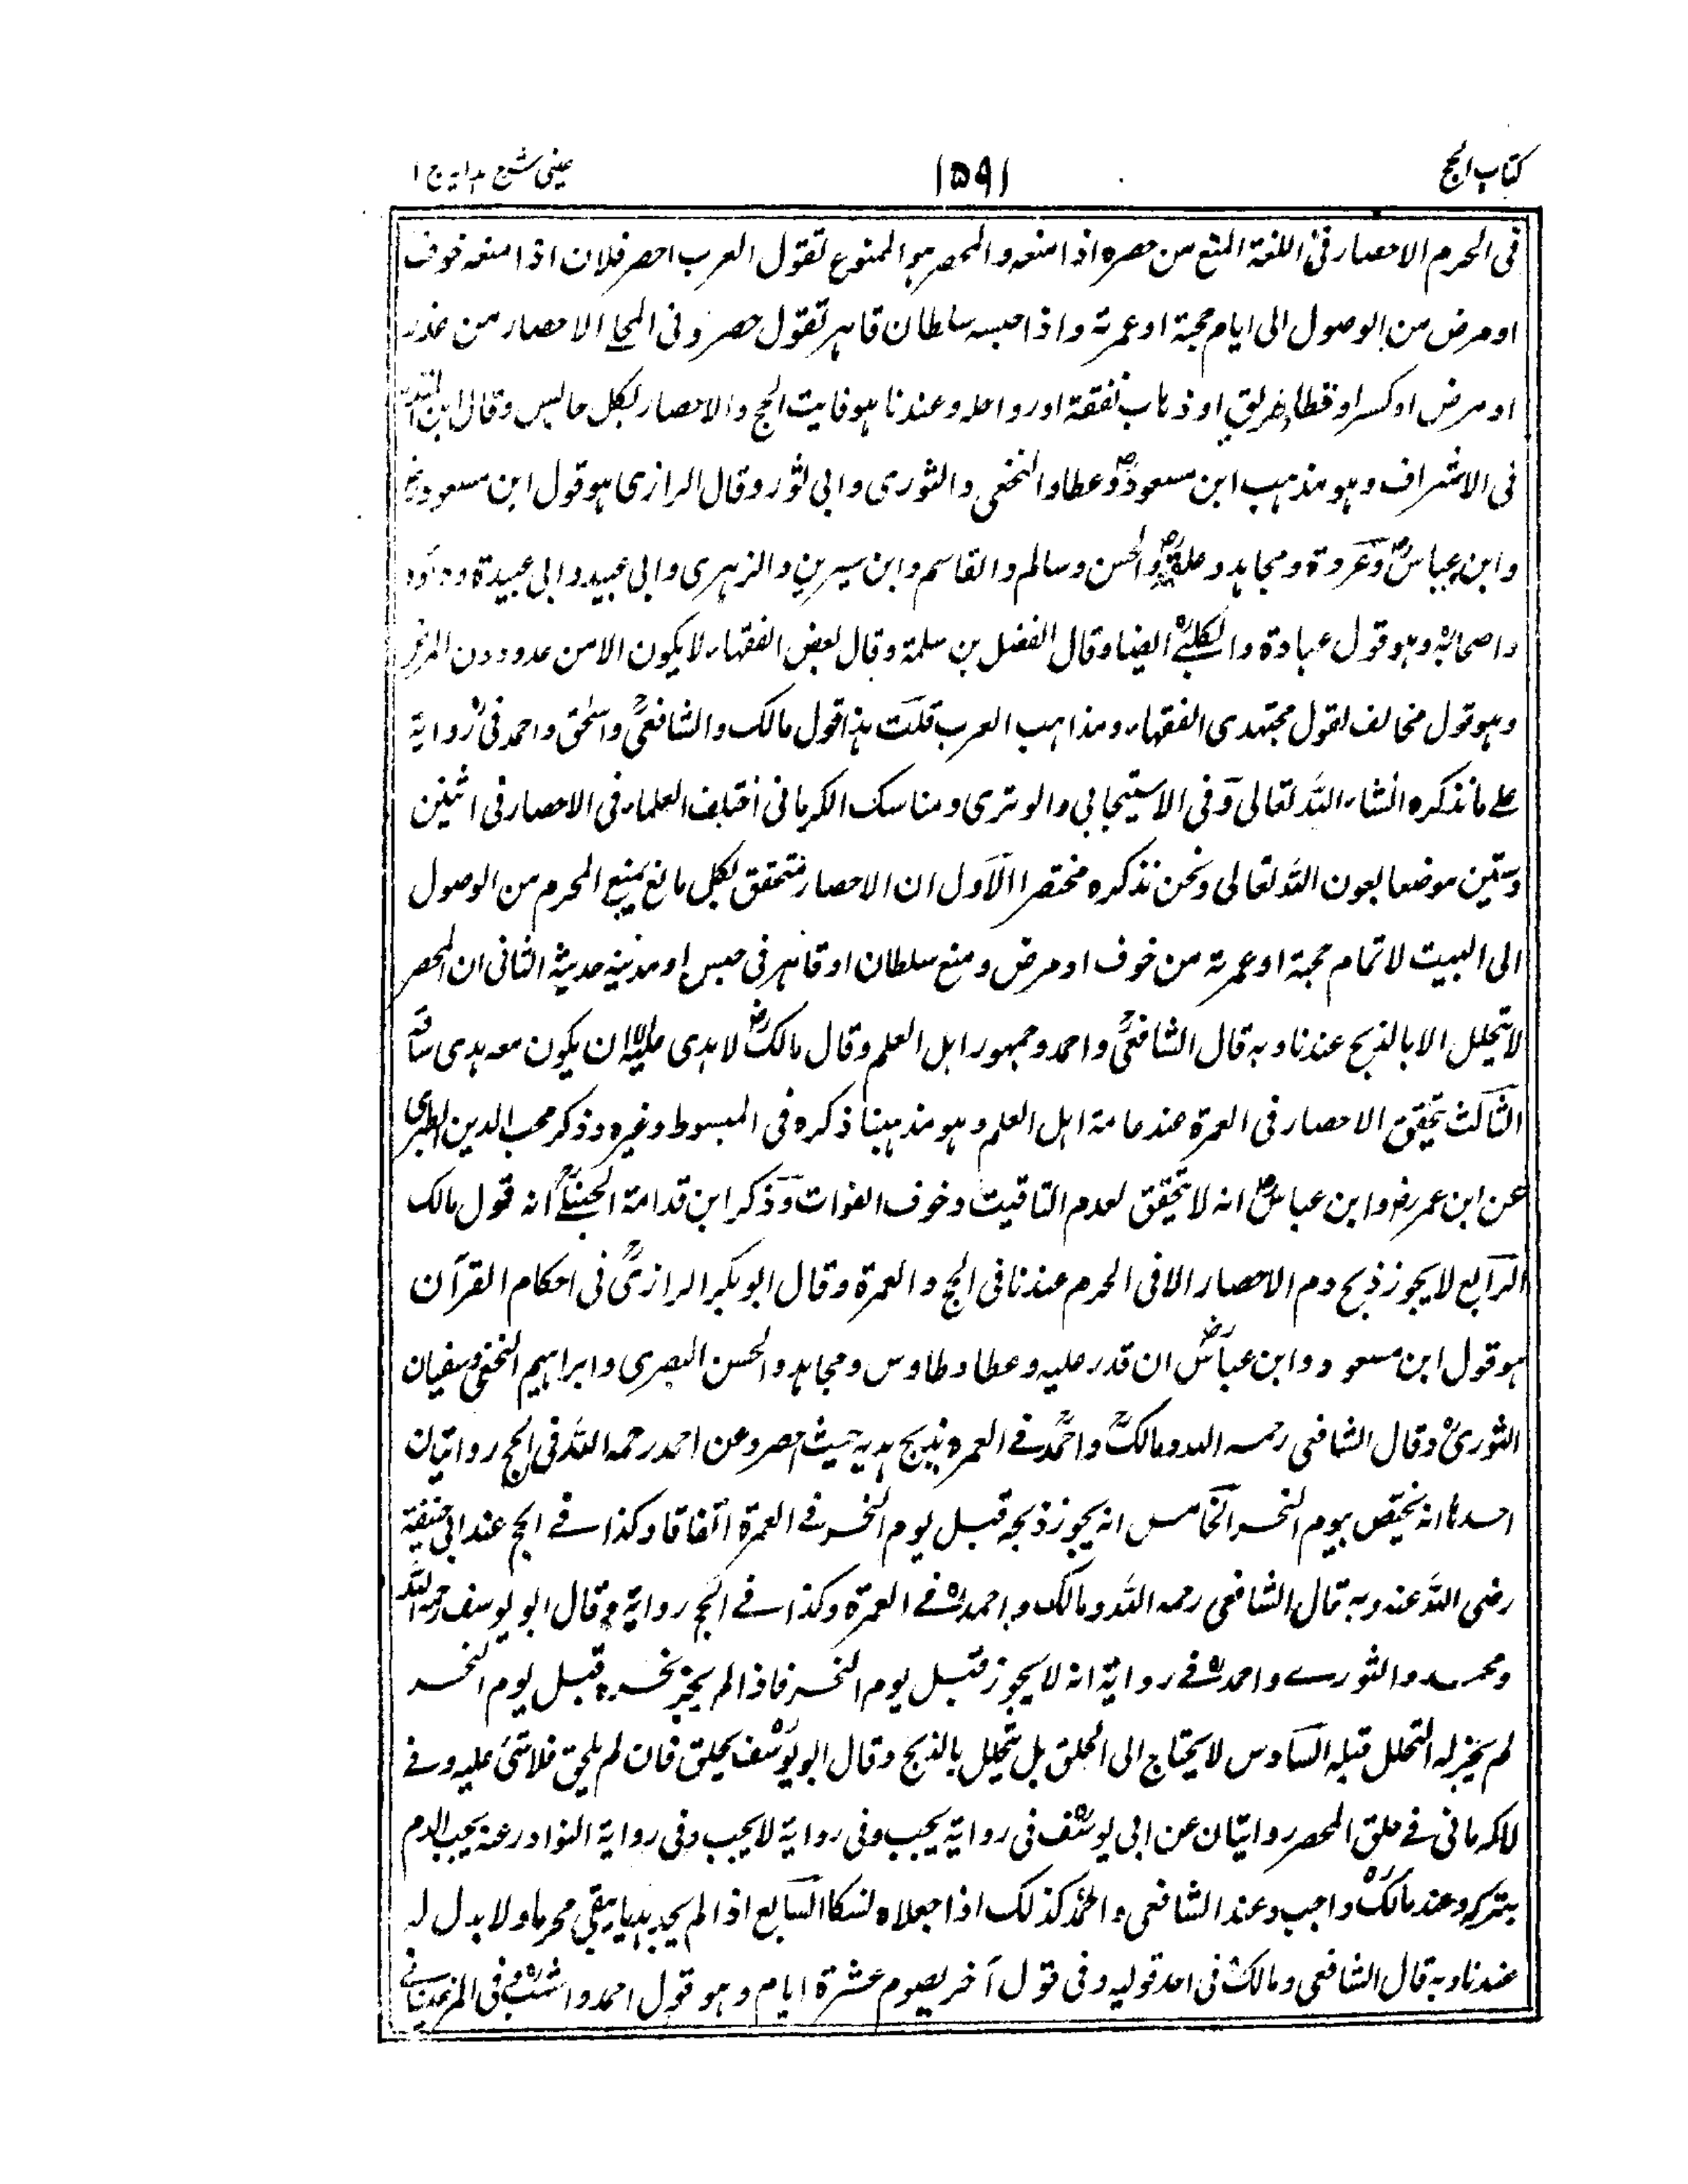 كتاب الحج
١٥٩١
عینی شرح هدایه ج ١
فی الحرم الاحصار فی اللغة المنع من حصره اذا منعه والمحصر هو الممنوع تقول العرب احصر فلان اذا منعه خوف
او مرض من الوصول الی ایام حجته او عمرته واذا حبسه سلطان قاهر تقول حصر وفی المحلے الاحصار من عذر
او مرض او کسر او قطاع طریق او ذهاب نفقة او رواحله وعندنا هو فایت الحج والاحصار لکل حابس وقال ابن المنذر
فی الاشراف وهو مذهب ابن مسعودؓ وعطا والنخعی والثوری وابی ثور وقال الرازی هو قول ابن مسعودؓ
وابن عباسؓ وعروة ومجاهد وعلقمة والحسن وسالم والقاسم وابن سیرین والزهری وابی عبید وابی عبیدة وداؤد
واصحابه وهو قول عبادة والکلبےؒ ایضا وقال الفضل بن سلمة وقال بعض الفقهاء لا یکون الا من عدو دون المرض
وهو قول مخالف لقول مجتهدی الفقهاء ومذاهب العرب قلت هذا قول مالک والشافعیؒ واسحٰق واحمد فی روایة
علے ما نذکره انشاء اللہ تعالی وفی الاسبیجابی والوتری ومناسک الکرمانی اختلف العلماء فی الاحصار فی اثنین
وستین موضعا بعون اللہ تعالی ونحن نذکره مختصرا الاول ان الاحصار یتحقق لکل مانع یمنع المحرم من الوصول
الی البیت لاتمام حجته او عمرته من خوف او مرض ومنع سلطان او قاهر فی حبس او مدینة حدیثة الثانی ان المحصر
لا یتحلل الا بالذبح عندنا وبه قال الشافعیؒ واحمد وجمهور اهل العلم وقال مالکؒ لا هدی علیه الا ان یکون معه هدی ساقه
الثالث یتحقق الاحصار فی العمرة عند عامة اهل العلم وهو مذهبنا ذکره فی المبسوط وغیره وذکر محب الدین الطبری
عن ابن عمرؓ وابن عباسؓ انه لا یتحقق لعدم التاقیت وخوف الفوات وذکر ابن قدامة الحنبلےؒ انه قول مالک
الرابع لا یجوز ذبح دم الاحصار الا فی الحرم عندنا فی الحج والعمرة وقال ابو بکر الرازیؒ فی احکام القرآن
هو قول ابن مسعود وابن عباسؓ ان قدر علیه وعطا وطاوس ومجاهد والحسن البصری وابراهیم النخعی وسفیان
الثوریؒ وقال الشافعی رحمه اللہ ومالکؒ واحمدؒ فے العمرة یذبح هدیه حیث احصر وعن احمد رحمه اللہ فی الحج روایتان
احدٰهما انه یختص بیوم النحر الخامس انه یجوز ذبحه قبل یوم النحر فے العمرة اتفاقا وکذا فے الحج عند ابی حنیفة
رضی اللہ عنه وبه قال الشافعی رحمه اللہ ومالک واحمدؒ فے العمرة وکذا فے الحج روایة وقال ابو یوسف رحمه اللہ
ومحمد والثورے واحمدؒ فے روایة انه لا یجوز قبل یوم النحر فاذا لم یجز نحره قبل یوم النحر
لم یجز له التحلل قبله السادس لا یحتاج الی الحلق بل یتحلل بالذبح وقال ابو یوسفؒ یحلق فان لم یحلق فلا شئ علیه وفے
الکرمانی فے حلق المحصر روایتان عن ابی یوسفؒ فی روایة یجب وفی روایة لا یجب وفی روایة النوادر عنه یجب الدم
بترکه وعند مالکؒ واجب وعند الشافعی واحمدؒ کذلک اذا جعلاه نسکا السابع اذا لم یجد هدیا یبقی محرما ولا بدل له
عندنا وبه قال الشافعی ومالکؒ فی احد قولیه وفی قول آخر یصوم عشرة ایام وهو قول احمد واشهبؒ فی